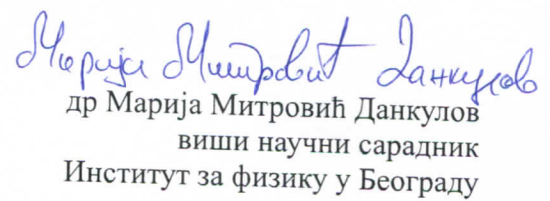 Марија Митровић Данкулов
др Марија Митровић Данкулов
виши научни сарадник
Институт за физику у Београду